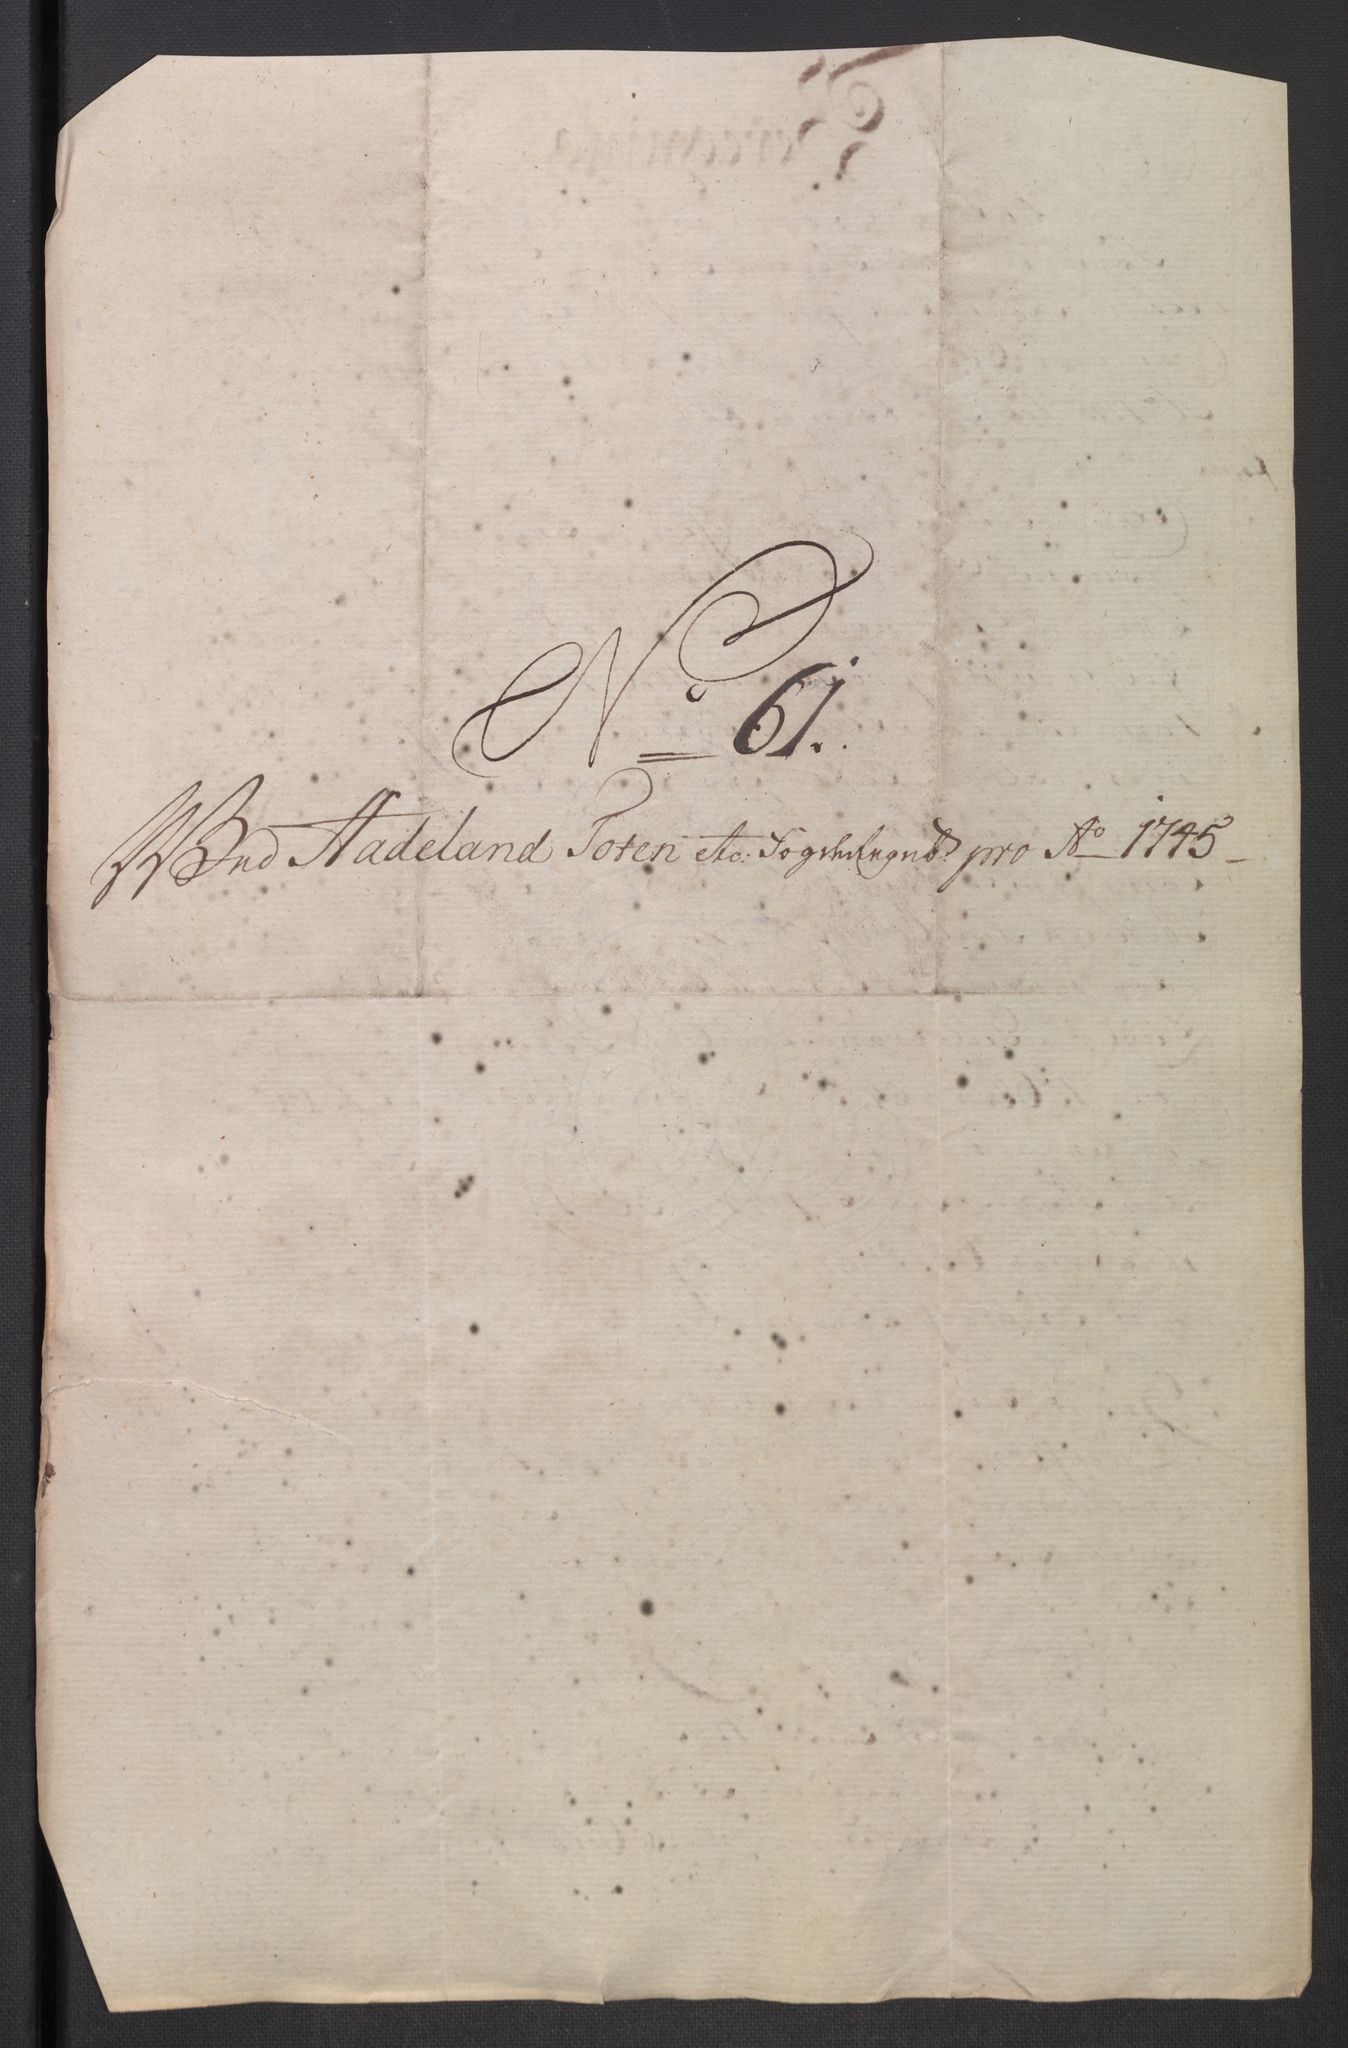 No 61.
Wed Hadeland Toten etc: Fogds Regnsk: pro Ao 1745